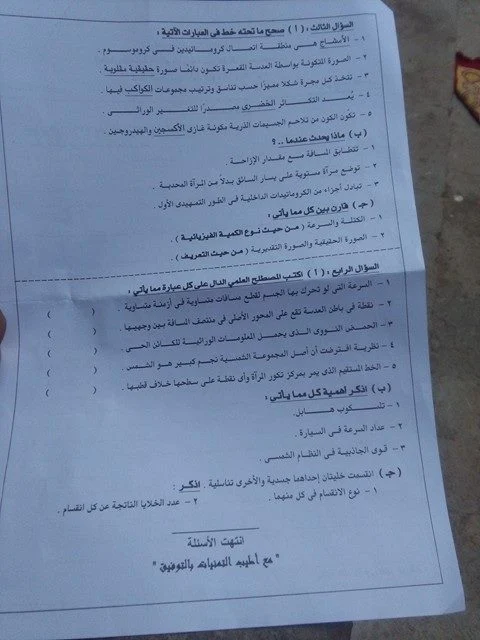 السؤال الثالث : ( أ ) صحح ما تحته خط فى العبارات الآتية :
١ - الأمشاج هى منطقة اتصال كروماتيدين فى كروموسوم .
٢ - الصورة المتكونة بواسطة العدسة المقعرة تكون دائما صورة حقيقية مقلوبة .
٣ - تتخذ كل مجرة شكلا مميزا حسب تناسق وترتيب مجموعات الكواكب فيها .
٤ - يُعد التكاثر الخضرى مصدرًا للتغير الوراثى .
٥ - تكون الكون من تلاحم الجسيمات الذرية مكونة غازى الأكسجين والهيدروجين .
(ب) ماذا يحدث عندما .. ؟
١ - تتطابق المسافة مع مقدار الإزاحة .
٢ - توضع مرآة مستوية على يسار السائق بدلاً من المرآة المحدبة .
٣ - تبادل أجزاء من الكروماتيدات الداخلية فى الطور التمهيدى الأول .
(جـ) قارن بين كل مما يأتى :
١ - الكتلة والسرعة ( من حيث نوع الكمية الفيزيائية ) .
٢ - الصورة الحقيقية والصورة التقديرية ( من حيث التعريف ) .
السؤال الرابع : ( أ ) اكتب المصطلح العلمى الدال على كل عبارة مما يأتى :
١ - السرعة التى لو تحرك بها الجسم لقطع مسافات متساوية فى أزمنة متساوية . ( )
٢ - نقطة فى باطن العدسة تقع على المحور الأصلى فى منتصف المسافة بين وجهيها . ( )
٣ - الحمض النووى الذى يحمل المعلومات الوراثية للكائن الحى . ( )
٤ - نظرية افترضت أن أصل المجموعة الشمسية نجم كبير هو الشمس . ( )
٥ - الخط المستقيم الذى يمر بمركز تكور المرآة وأى نقطة على سطحها خلاف قطبها . ( )
(ب) اذكر أهمية كل مما يأتى :
١ - تلسكوب هابل .
٢ - عداد السرعة فى السيارة .
٣ - قوى الجاذبية فى النظام الشمسى .
(جـ) انقسمت خليتان إحداهما جسدية والأخرى تناسلية . اذكر :
١ - نوع الانقسام فى كل منهما . ٢ - عدد الخلايا الناتجة عن كل انقسام .
انتهت الأسئلة
" مع أطيب التمنيات بالتوفيق "